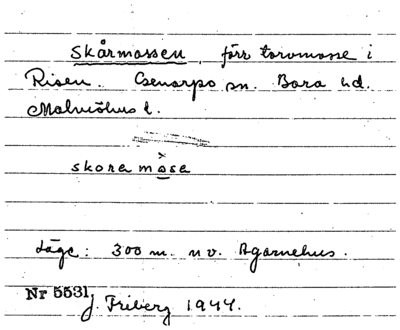 Skårmossen, förr torvmosse i
Risen. Genarps sn. Bara hd.
Malmöhus l.
skorę mosa
Läge: 300 m. nv. Agarnehus.
Nr 5531, J. Friberg 1944.